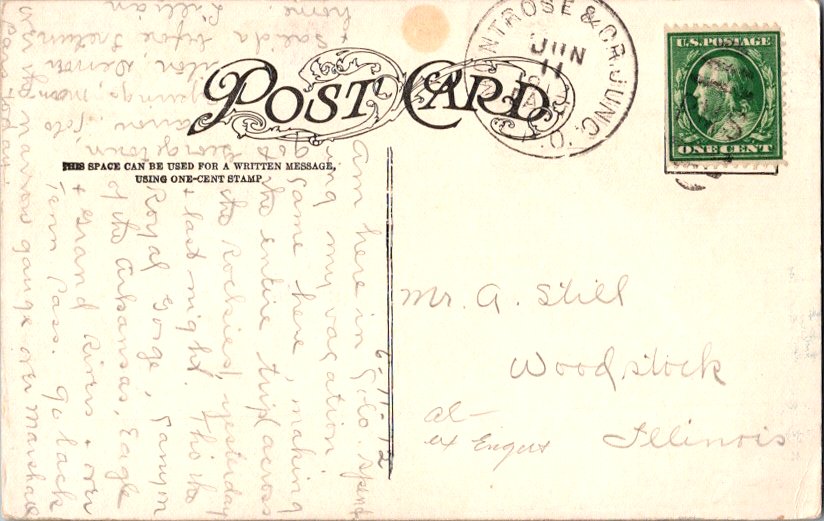 POST CARD
THIS SPACE CAN BE USED FOR A WRITTEN MESSAGE,
USING ONE-CENT STAMP
NTROSE & GR. JUNC.
JUN
11
U.S. POSTAGE
ONE CENT
Mr. A. Still
Woodstock
Illinois
6-11-12
am here in Colo. spend
ing my vacation
came here, making
the entire trip across
the Rockies, yesterday
& last night. Thro the
Royal Gorge, Canyon
of the Arkansas, Eagle
& Grand Rivers & over
Tenn Pass. Go back
via the narrow gauge over Marshall
Pass today.
& Salida before return
home.
Lillian